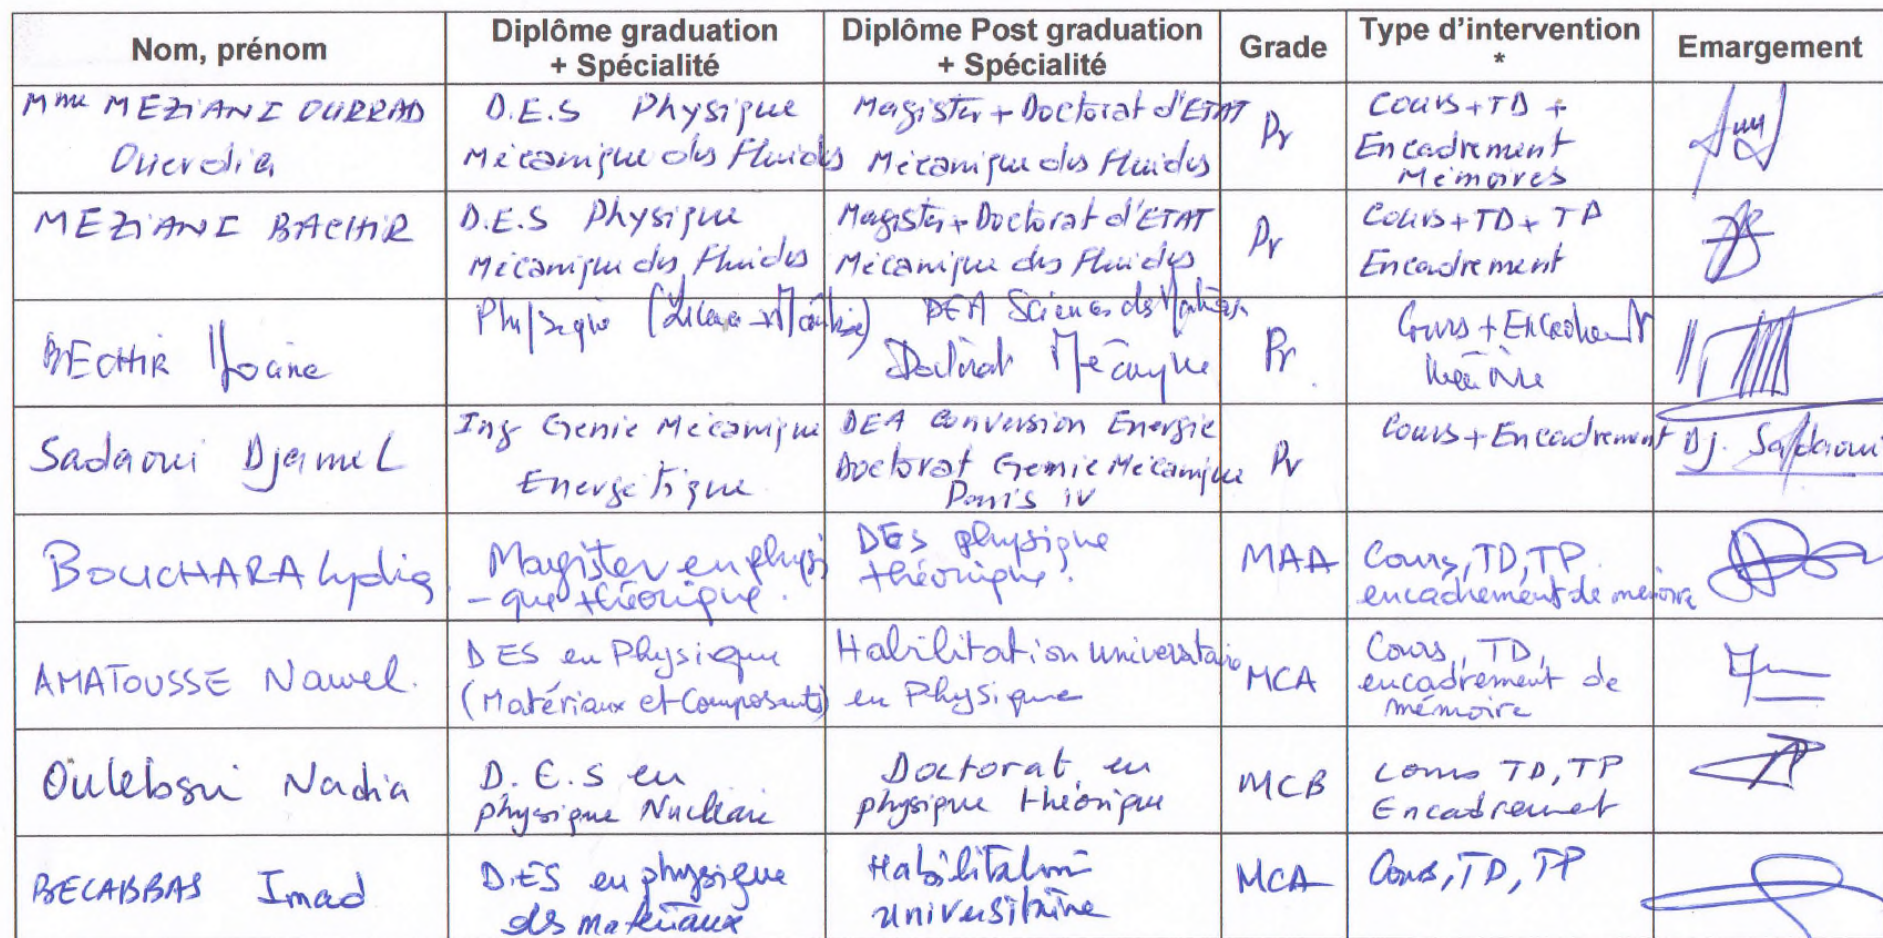 Nom, prénom
Diplôme graduation
+ Spécialité
Diplôme Post graduation
+ Spécialité
Grade
Type d'intervention
*
Emargement
Mme MEZIANI OURRAD
Ouerdia
D.E.S Physique
Mécanique des Fluides
Magister + Doctorat d'ETAT
Mécanique des Fluides
Pr
Cours + TD +
Encadrement
Mémoires
MEZIANI BACHIR
D.E.S Physique
Mécanique des Fluides
Magister + Doctorat d'ETAT
Mécanique des Fluides
Pr
Cours + TD + TP
Encadrement
BECHIR Hocine
DEA Sciences des
Doctorat Mécanique
Pr.
Cours + Encadrement
Sadaoui Djamel
Ing Genie Mécanique
Energétique
DEA Conversion Energie
Doctorat Genie Mécanique
Paris IV
Pr
Cours + Encadrement
Dj. Sadaoui
BOUCHARA Lydia
Magister en physi
-que théorique.
DES physique
théorique.
MAA
Cours, TD, TP.
encadrement de mémoire
AMATOUSSE Nawel.
DES en Physique
(Matériaux et Composants)
Habilitation universitaire
en Physique
MCA
Cours, TD,
encadrement de
mémoire
Oulebsir Nadia
D.E.S en
physique Nucléaire
Doctorat en
physique théorique
MCB
Cours TD, TP
Encadrement
BECABBAS Imad
D.ES en physique
des matériaux
Habilitation
universitaire
MCA
Cours, TD, TP